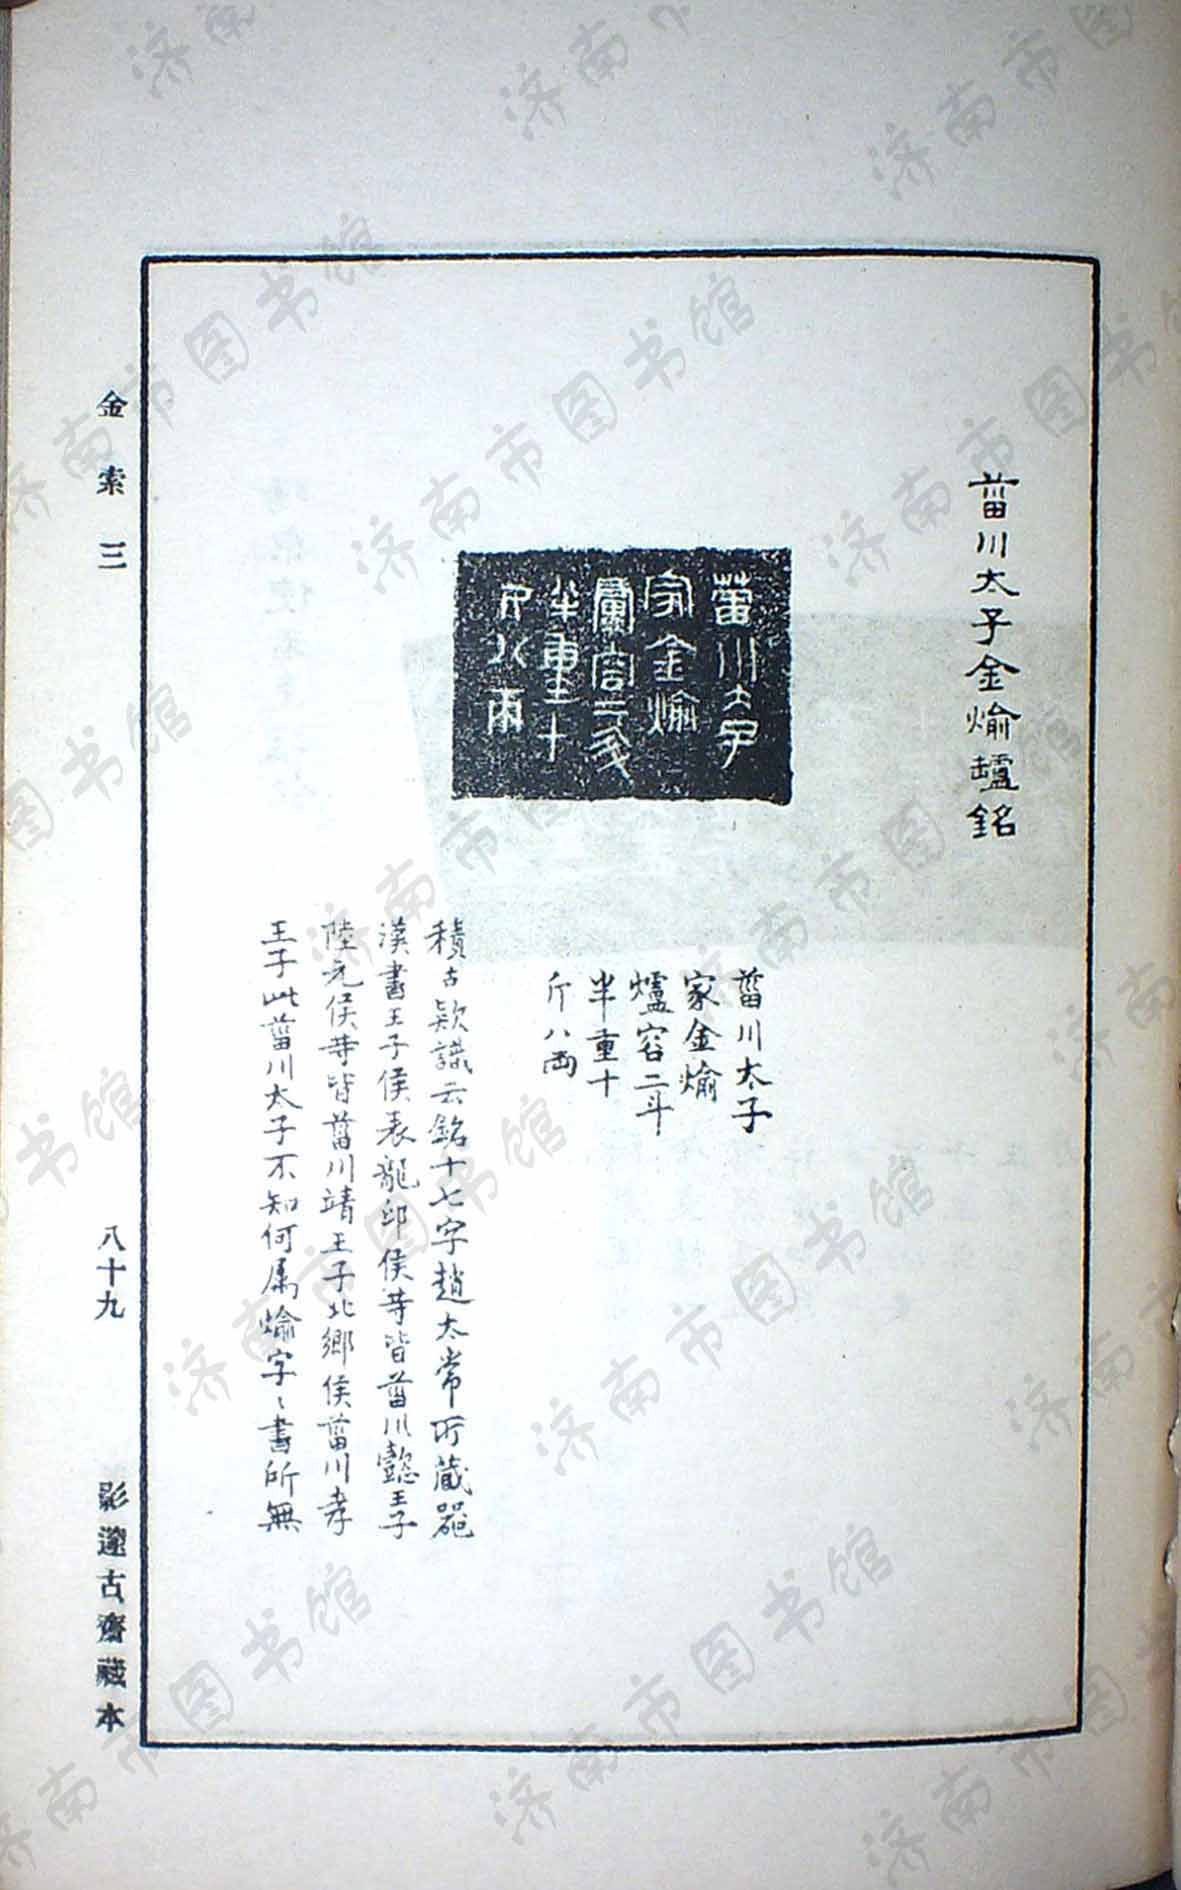 菑川太子金煰鑪銘
菑川太子
家金煰
爐容二斗
半重十
斤八兩
菑川太子
家金煰
爐容二斗
半重十
斤八兩
積古款識云銘十七字趙太常所藏器
漢書王子侯表龍邱侯等皆菑川懿王子
陸元侯等皆菑川靖王子北鄉侯菑川孝
王子此菑川太子不知何屬煰字字書所無
金索三
八十九
影邃古齋藏本
济南市图书馆